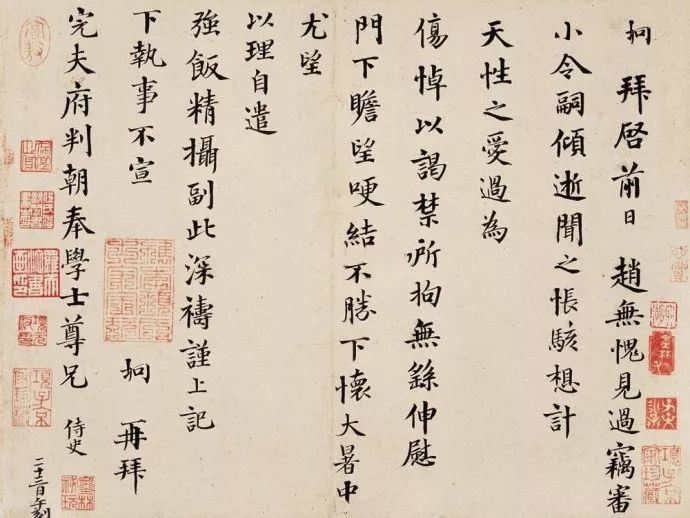 坰 拜啓前日 趙無愧見過竊審
小令嗣傾逝聞之悵駭想計
天性之愛過為
傷悼以謁禁所拘無繇伸慰
門下瞻望哽結不勝下懷大暑中
尤望
以理自遣
強飯精攝副此深禱謹上記
下執事不宣
坰 再拜
完夫府判朝奉學士尊兄 侍史
二十三日午刻
項子京家珍藏